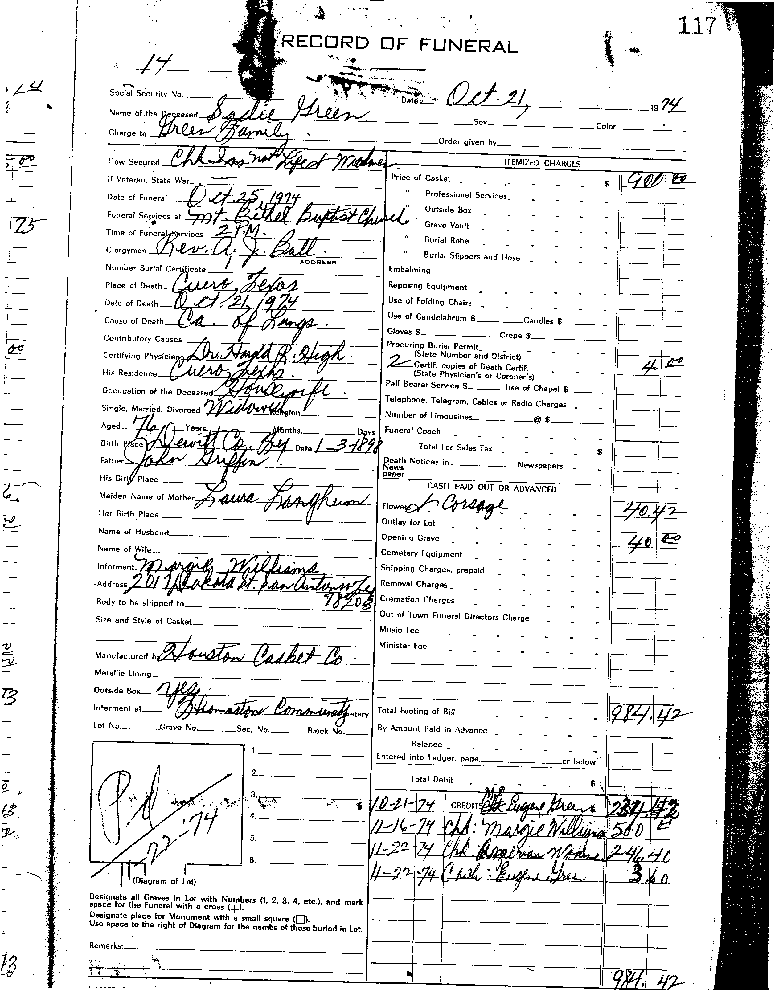 117
RECORD OF FUNERAL
14
Social Security No.
Date Oct. 21, 1974
Name of the Deceased Sadie Green
Sex Color
Charge to Green Family
Order given by
How Secured Chk Ins
If Veteran, State War
Date of Funeral Oct 25, 1974
Funeral Services at Mt. Bethel Baptist Church
Time of Funeral Services 2 P.M.
Clergyman Rev. A. J. Ball
ADDRESS
Number Burial Certificate
Place of Death Cuero, Texas
Date of Death Oct 21, 1974
Cause of Death Ca. of Lungs
Contributory Causes
Certifying Physician Dr. R. High
His Residence Cuero Texas
Occupation of the Deceased Housewife
Single, Married, Divorced Widow Religion
Aged 76 Years Months Days
Birth Place Dewitt Co. Date 1-3-1898
Father John Griffin
His Birth Place
Maiden Name of Mother Laura
Her Birth Place
Name of Husband
Name of Wife
Informant Margie Williams
Address 2017 Dakota St. San Antonio Tx
78203
Body to be shipped to
Size and Style of Casket
Manufactured by Houston Casket Co
Metallic Lining
Outside Box yes
Interment at Thomaston Community Cemetery
Lot No. Grave No. Sec. No. Block No.
1.
2.
3.
4.
5.
6.
Pd
'74
(Diagram of Lot)
Designate all Graves in Lot with Numbers (1, 2, 3, 4, etc.), and mark
space for the Funeral with a cross (+).
Designate place for Monument with a small square (□).
Use space to the right of Diagram for the names of those buried in Lot.
Remarks
ITEMIZED CHARGES
Price of Casket $ 900.00
" Professional Services
" Outside Box
" Grave Vault
" Burial Robe
" Burial Slippers and Hose
Embalming
Reposing Equipment
Use of Folding Chairs
Use of Candelabrum $ Candles $
Gloves $ Crepe $
Procuring Burial Permit
(State Number and District)
2 Certif. copies of Death Certif. 4.00
(State Physician's or Coroner's)
Pall Bearer Service $ Use of Chapel $
Telephone, Telegram, Cables or Radio Charges
Number of Limousines @ $
Funeral Coach
Total for Sales Tax $
Death Notices in Newspapers
News
paper
CASH PAID OUT OR ADVANCED
Flowers Corsage 40.42
Outlay for Lot
Opening Grave 40.00
Cemetery Equipment
Shipping Charges, prepaid
Removal Charges
Cremation Charges
Out of Town Funeral Directors Charge
Music Fee
Minister Fee
Total Footing of Bill 984.42
By Amount Paid in Advance
Balance
Entered into Ledger, page or below
Total Debit $
10-21-74 CREDITS Eugene Green
11-16-74 Chk: Margie Williams 500
11-22-74 Chk 246.40
11-22-74 Cash: Eugene Green
984.42